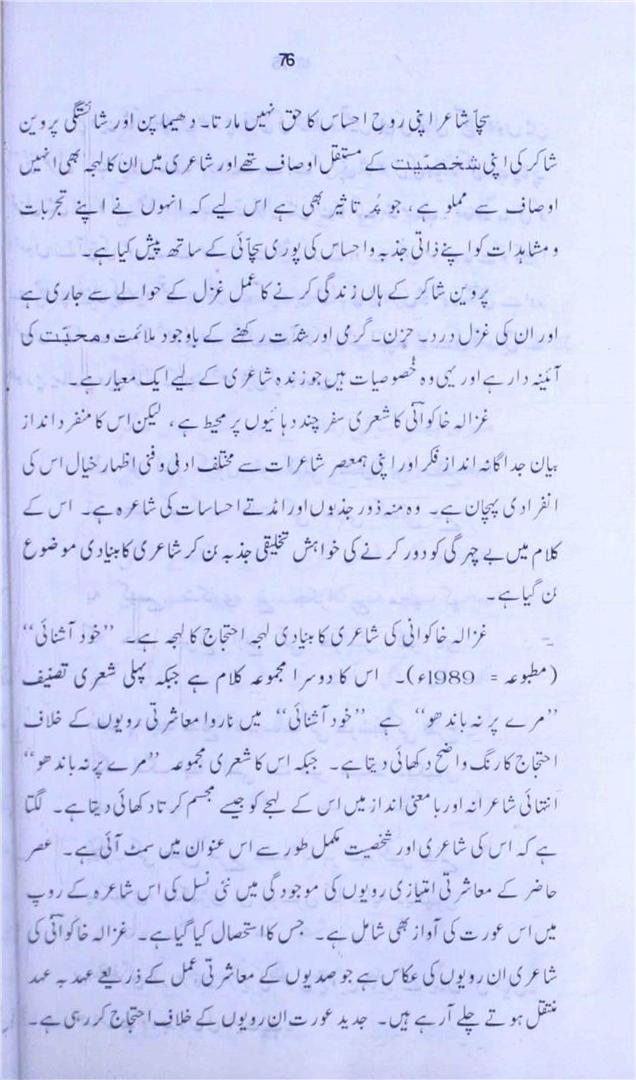 76
سچّا شاعر اپنی روحِ احساس کا حق نہیں مارتا۔ دھیما پن اور شائستگی پروین
شاکر کی اپنی شخصیّت کے مستقل اوصاف تھے اور شاعری میں ان کا لہجہ بھی انہیں
اوصاف سے مملو ہے، جو پُر تاثیر بھی ہے اس لیے کہ انہوں نے اپنے تجربات
و مشاہدات کو اپنے ذاتی جذبہ و احساس کی پوری سچّائی کے ساتھ پیش کیا ہے۔
پروین شاکر کے ہاں زندگی کرنے کا عمل غزل کے حوالے سے جاری ہے
اور ان کی غزل درد۔ حزن۔ گرمی اور شدّت رکھنے کے باوجود ملائمت و محبّت کی
آئینہ دار ہے اور یہی وہ خُصوصیات ہیں جو زندہ شاعری کے لیے ایک معیار ہے۔
غزالہ خاکوانی کا شعری سفر چند دہائیوں پر محیط ہے، لیکن اس کا منفرد انداز
بیان جداگانہ انداز فکر اور اپنی ہمعصر شاعرات سے مختلف ادبی و فنی اظہار خیال اس کی
انفرادی پہچان ہے۔ وہ منہ زور جذبوں اور امڈتے احساسات کی شاعرہ ہے۔ اس کے
کلام میں بے چہرگی کو دور کرنے کی خواہش تخلیقی جذبہ بن کر شاعری کا بنیادی موضوع
بن گیا ہے۔
غزالہ خاکوانی کی شاعری کا بنیادی لہجہ احتجاج کا لہجہ ہے۔ ”خود آشنائی“
(مطبوعہ = 1989ء)۔ اس کا دوسرا مجموعہ کلام ہے جبکہ پہلی شعری تصنیف
”مرے پر نہ باندھو“ ہے ”خود آشنائی“ میں ناروا معاشرتی رویوں کے خلاف
احتجاج کا رنگ واضح دکھائی دیتا ہے۔ جبکہ اس کا شعری مجموعہ ”مرے پر نہ باندھو“
انتہائی شاعرانہ اور بامعنی انداز میں اس کے لہجے کو جیسے مجسم کرتا دکھائی دیتا ہے۔ لگتا
ہے کہ اس کی شاعری اور شخصیت مکمل طور سے اس عنوان میں سمٹ آئی ہے۔ عصر
حاضر کے معاشرتی امتیازی رویوں کی موجودگی میں نئی نسل کی اس شاعرہ کے روپ
میں اس عورت کی آواز بھی شامل ہے۔ جس کا استحصال کیا گیا ہے۔ غزالہ خاکوانی کی
شاعری ان رویوں کی عکاس ہے جو صدیوں کے معاشرتی عمل کے ذریعے عہد بہ عہد
منتقل ہوتے چلے آ رہے ہیں۔ جدید عورت ان رویوں کے خلاف احتجاج کر رہی ہے۔